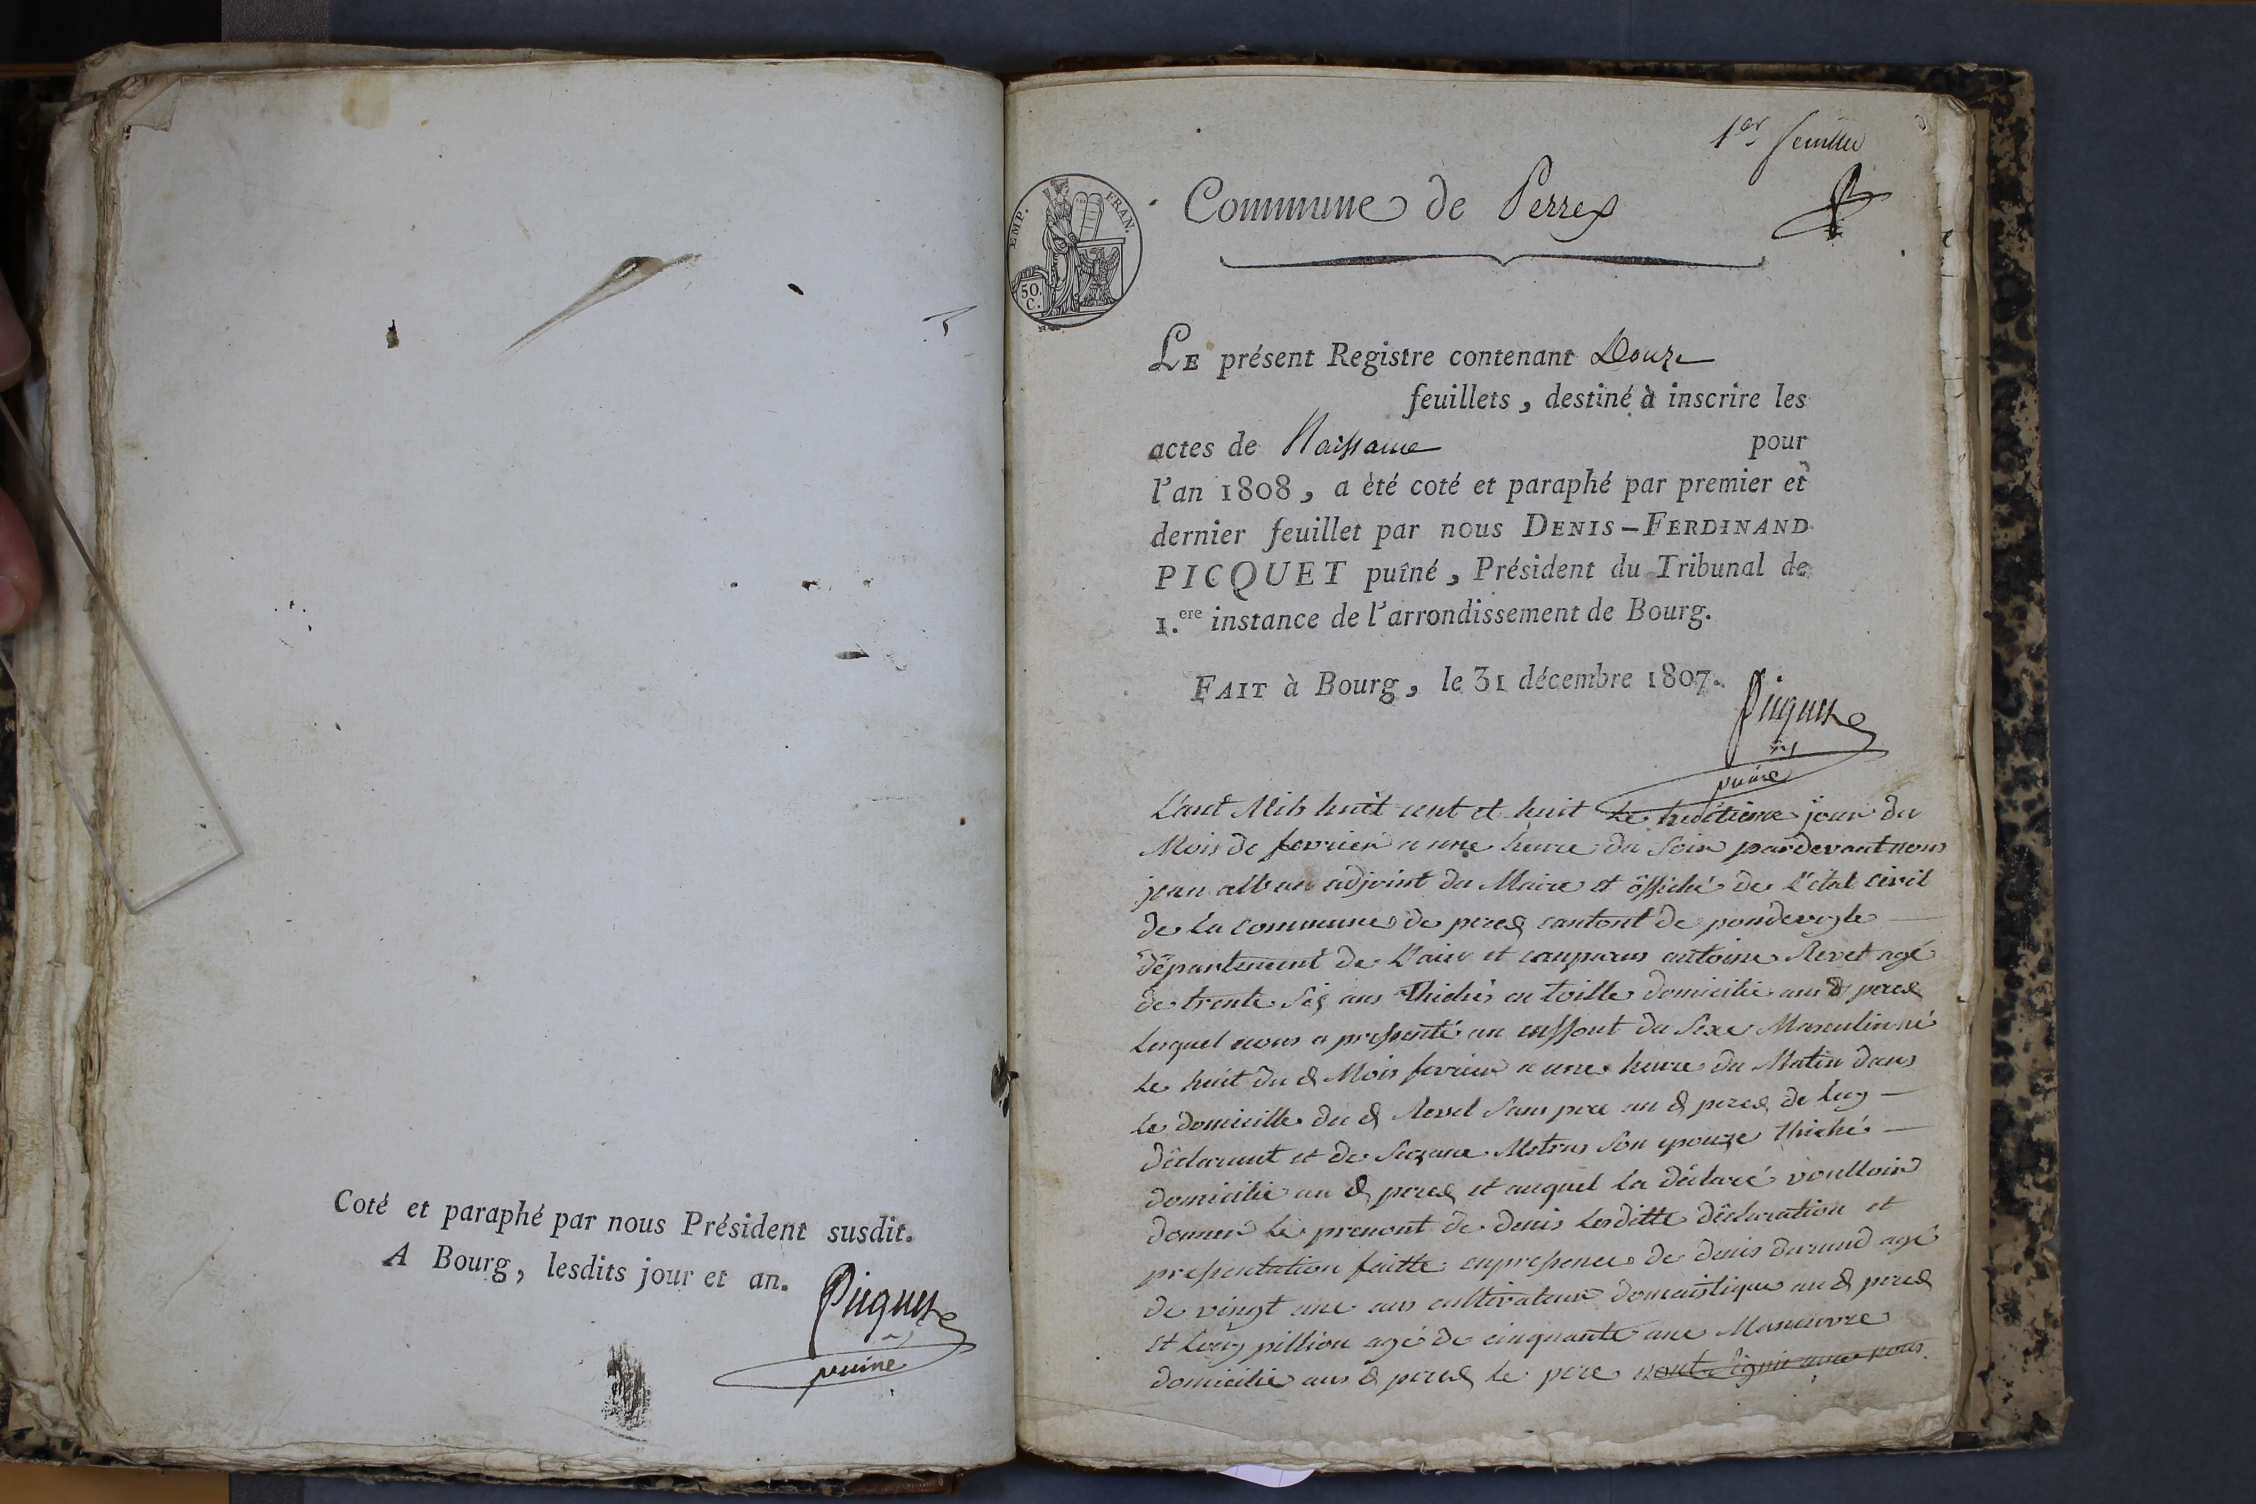 Coté et paraphé par nous Président susdit.
A Bourg, lesdits jour et an.
Picquet
puiné
1er feuillet
EMP. FRAN.
50.
C.
Commune de Perrex
LE présent Registre contenant Douze
feuillets, destiné à inscrire les
actes de Naissance pour
l'an 1808, a èté coté et paraphé par premier et
dernier feuillet par nous DENIS-FERDINAND
PICQUET puîné, Président du Tribunal de
1.ere instance de l'arrondissement de Bourg.
FAIT à Bourg, le 31 décembre 1807.
Picquet
puiné
L'ant Mils huit cent et huit Le huitieme jour du
Mois de fevrier a une heure du Soir pardevant nous
jean alban adjoint du Maire et officié de L'etat civil
de La commune de perex cantont de pondevegle
département de L'ain et comparus antoine Revet agé
de trente Six ans Thichés en toille domicilie au d perex
Lequel nous a pressenté un enffant du Sexe Masculin né
Le huit du d Mois fevrier a une heure du Matin dans
Le domicille du d Revel Sans pere au d perex de Luy
déclarant et de Suzane Metras Son epouze thiché
domicilie au d perex et auquel la déclaré voulloir
donner Le prenont de denis Lesditte déclaration et
pressentation faitte en pressence de denis durand agé
de vingt une ans cultivateur domaistique au d perex
et Louis pillion agé de cinquante une Maneuvre
domicilie aus d perex Le pere vont Signié avec nous